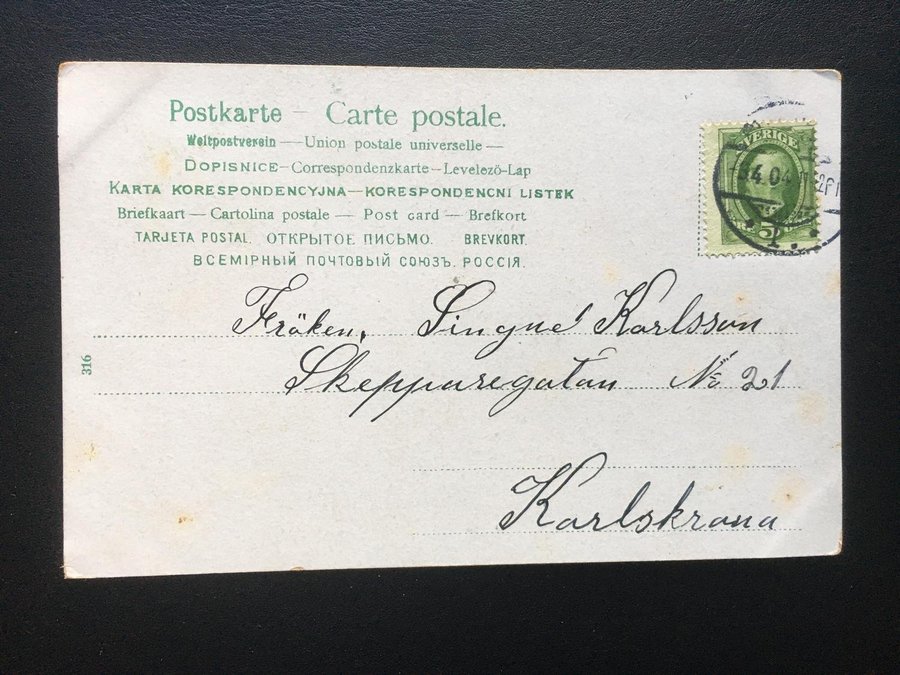 Postkarte – Carte postale.
Weltpostverein — Union postale universelle —
DOPISNICE – Correspondenzkarte – Levelező-Lap
KARTA KORESPONDENCYJNA – KORESPONDENCNI LISTEK
Briefkaart — Cartolina postale — Post card — Brefkort
TARJETA POSTAL. ОТКРЫТОЕ ПИСЬМО. BREVKORT.
ВСЕМІРНЫЙ ПОЧТОВЫЙ СОЮЗЪ. РОССІЯ.
SVERIGE
5
Fröken, Singne Karlsson
Skepparegatan No 21
Karlskrona
316